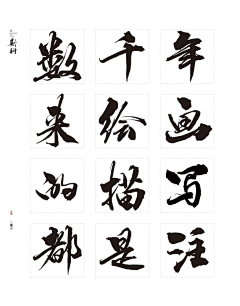 数千年
来绘画
的描写
都是注